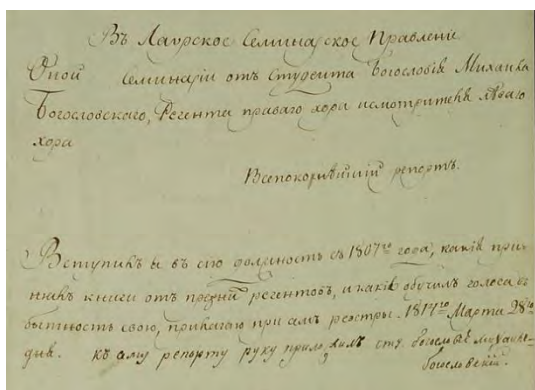 Въ Лаврское Семинарское Правленіе
Оной Семинаріи отъ Студента Богословія Михаила
Богословскаго, Регента праваго хора и смотрителя лѣваго
хора
Всепокорнѣйшій репортъ.
Вступивъ я въ сію должность съ 1807го года, какія при-
нялъ книги отъ прежн регентовъ, и какія обучилъ голоса въ
бытность свою, прилагаю при семъ реэстры. 1814го Марта 28го
дня. къ сему репорту руку приложилъ студ. богословія Михаилъ
богословскій.